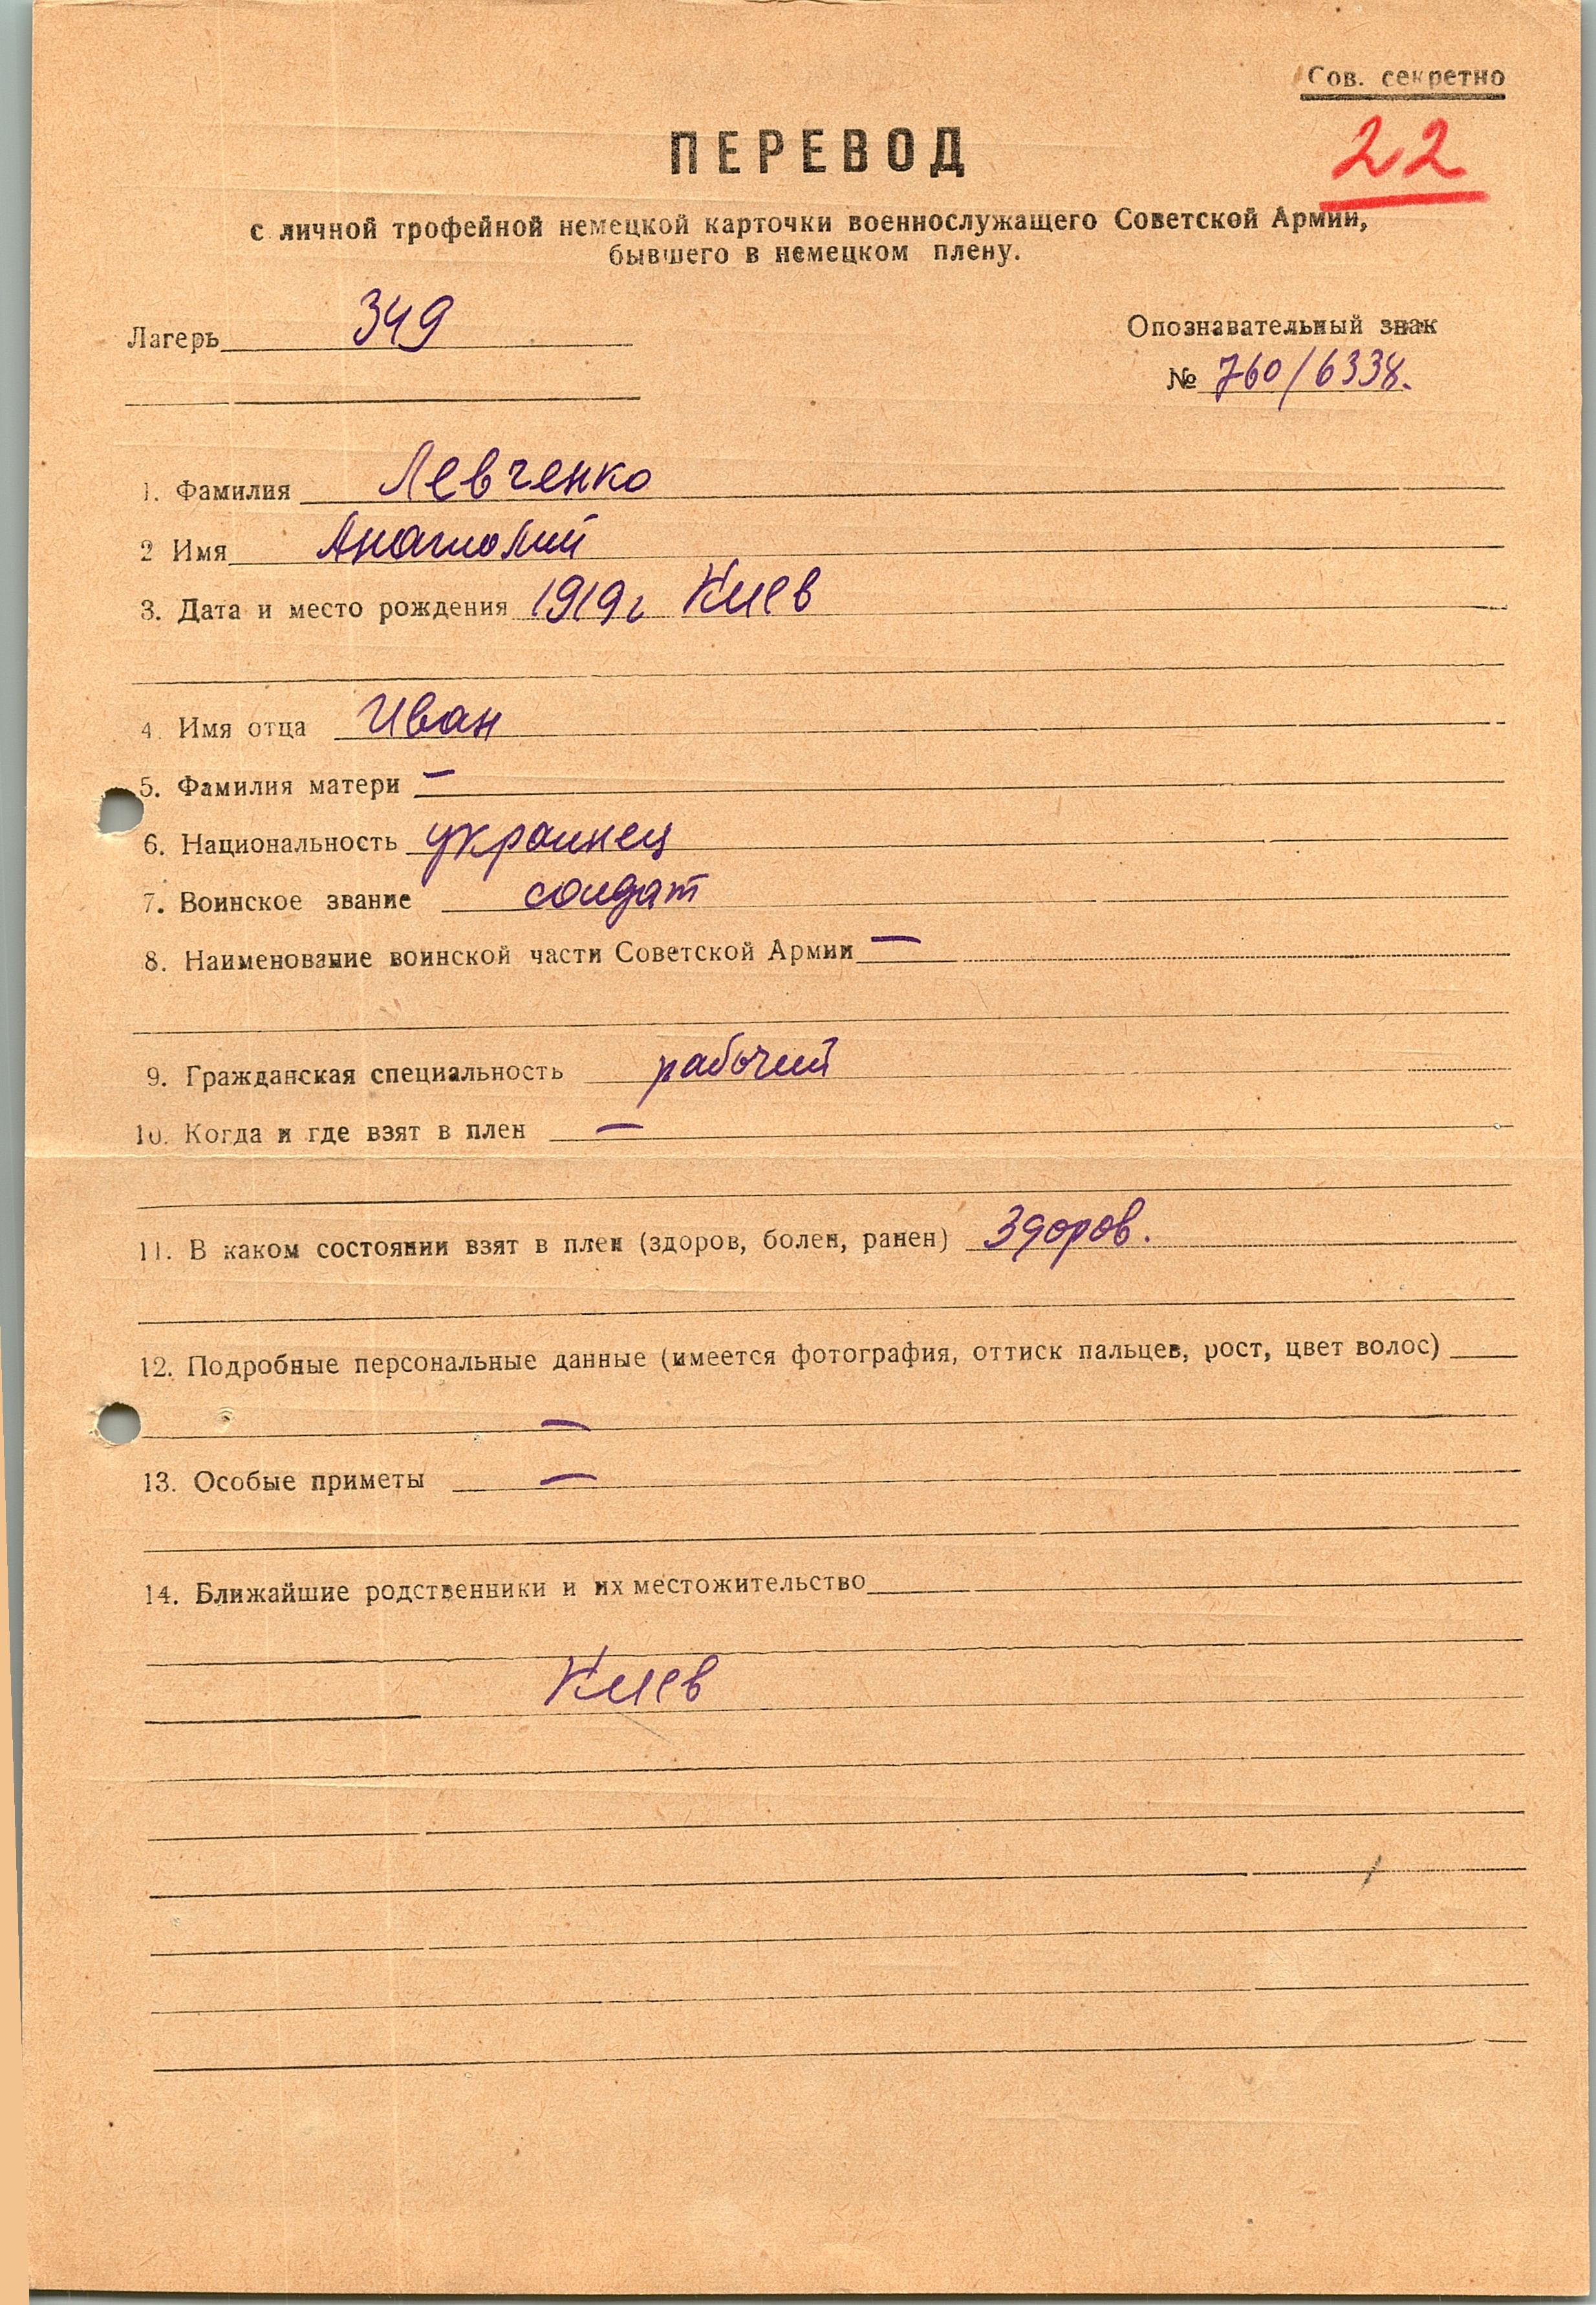 Сов. секретно
22
ПЕРЕВОД
с личной трофейной немецкой карточки военнослужащего Советской Армии,
бывшего в немецком плену.
Лагерь 349
Опознавательный знак
№ 760/6338.
1. Фамилия Левченко
2 Имя Анатолий
3. Дата и место рождения 1919г Киев
4. Имя отца Иван
5. Фамилия матери —
6. Национальность украинец
7. Воинское звание солдат
8. Наименование воинской части Советской Армии —
9. Гражданская специальность рабочий
10. Когда и где взят в плен —
11. В каком состоянии взят в плен (здоров, болен, ранен) Здоров.
12. Подробные персональные данные (имеется фотография, оттиск пальцев, рост, цвет волос)
—
13. Особые приметы —
14. Ближайшие родственники и их местожительство
Киев